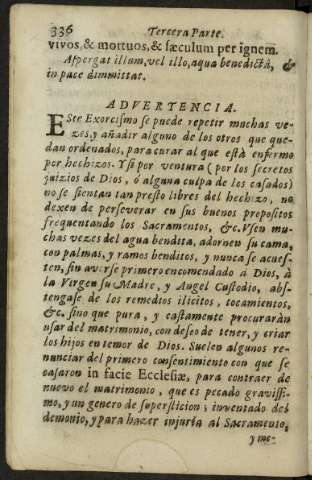 336 Tercera Parte.
vivos, & mortuos, & sæculum per ignem.
Aspergat illum, vel illo, aqua benedicta, &
in pace dimmittat.
ADVERTENCIA.
Este Exorcismo se puede repetir muchas ve-
zes, y añadir alguno de los otros que que-
dan ordenados, para curar al que està enfermo
por hechizos. Y si por ventura (por los secretos
juizios de Dios, ó alguna culpa de los casados)
no se sientan tan presto libres del hechizo, no
dexen de perseverar en sus buenos propositos
frequentando los Sacramentos, &c. Vsen mu-
chas vezes del agua bendita, adornen su cama,
con palmas, y ramos benditos, y nunca se acues-
ten, sin averse primero encomendado à Dios, à
la Virgen su Madre, y Angel Custodio, abs-
tengase de los remedios ilicitos, tocamientos,
&c. sino que pura, y castamente procuraràn
usar del matrimonio, con deseo de tener, y criar
los hijos en temor de Dios. Suelen algunos re-
nunciar del primero consentimiento con que se
casaron in facie Ecclesiæ, para contraer de
nuevo el matrimonio, que es pecado gravissi-
mo, y un genero de supersticion, inventado del
demonio, y para hazer injuria al Sacramento,
y me-